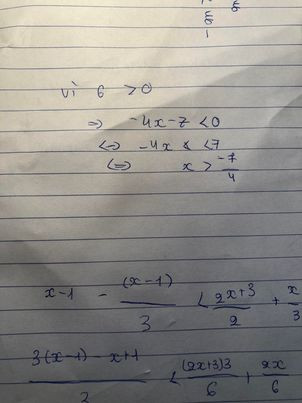 vì 6 > 0
=> -4x-7 < 0
<=> -4x < 7
<=> x > -7/4
x-1 - (x-1)/3 < 2x+3/2 + x/3
3(x-1) - x+1/3 < (2x+3)3/6 + 2x/6